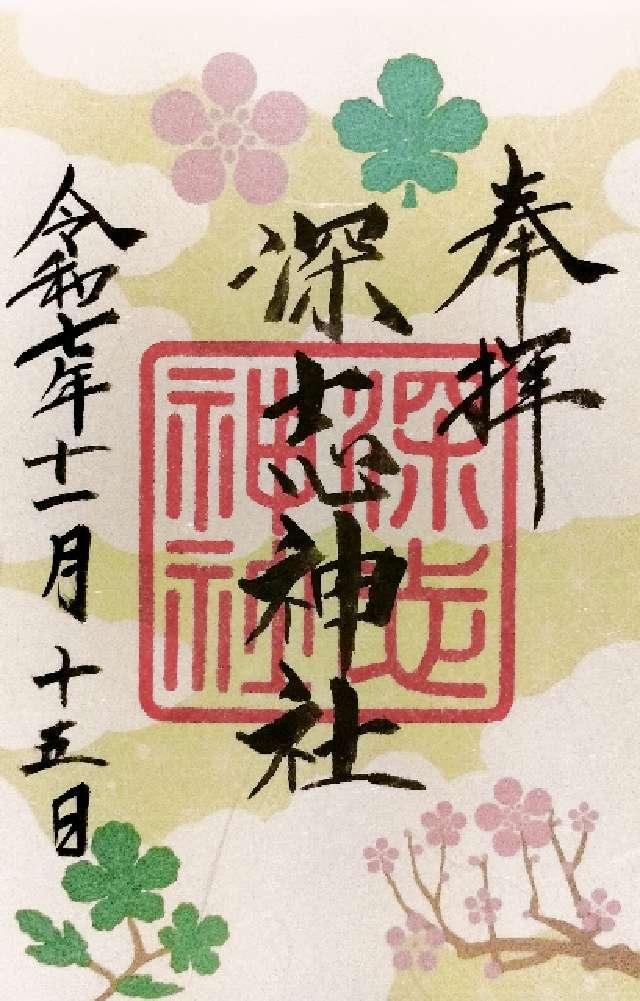 奉拝
深志神社
深志神社
令和七年十一月十五日